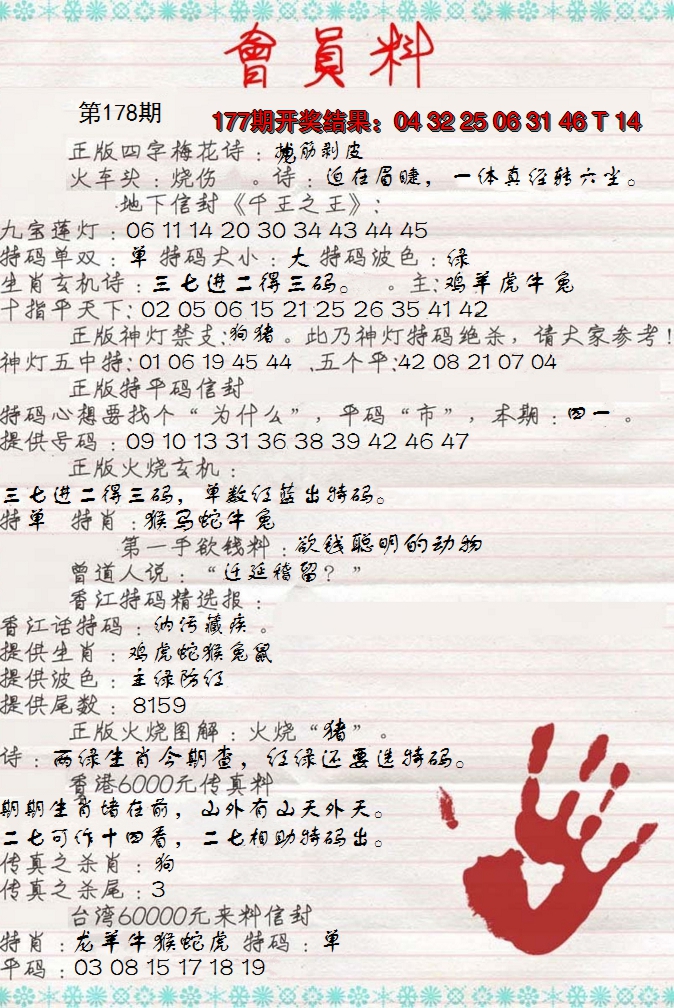 會員料
第178期
177期开奖结果：04 32 25 06 31 46 T 14
正版四字梅花诗：抛筋剥皮
火车头：烧伤 。诗：迫在眉睫，一体真经转六尘。
.地下信封《千王之王》：
九宝莲灯：06 11 14 20 30 34 43 44 45
特码单双：单 特码大小：大 特码波色：绿
生肖玄机诗：三七进二得三码。 。主：鸡羊虎牛兔
十指平天下：02 05 06 15 21 25 26 35 41 42
正版神灯禁支：狗猪。此乃神灯特码绝杀，请大家参考！
神灯五中特：01 06 19 45 44 .五个平：42 08 21 07 04
正版特平码信封
特码心想要找个“为什么”，平码“市”，本期：四一 。
提供号码：09 10 13 31 36 38 39 42 46 47
正版火烧玄机：
三七进二得三码，单数红蓝出特码。
特单 特肖：猴马蛇牛兔
第一手欲钱料：欲钱聪明的动物
曾道人说：“迁延稽留？”
香江特码精选报：
香江话特码：纳污藏疾。
提供生肖：鸡虎蛇猴兔鼠
提供波色：主绿防红
提供尾数：8159
正版火烧图解：火烧“猪”。
诗：两绿生肖今期查，红绿还要选特码。
香港6000元传真料
期期生肖堵在前，山外有山天外天。
二七可作十四看，二七相助特码出。
传真之杀肖：狗
传真之杀尾：3
台湾60000元来料信封
特肖：龙羊牛猴蛇虎 特码：单
平码：03 08 15 17 18 19